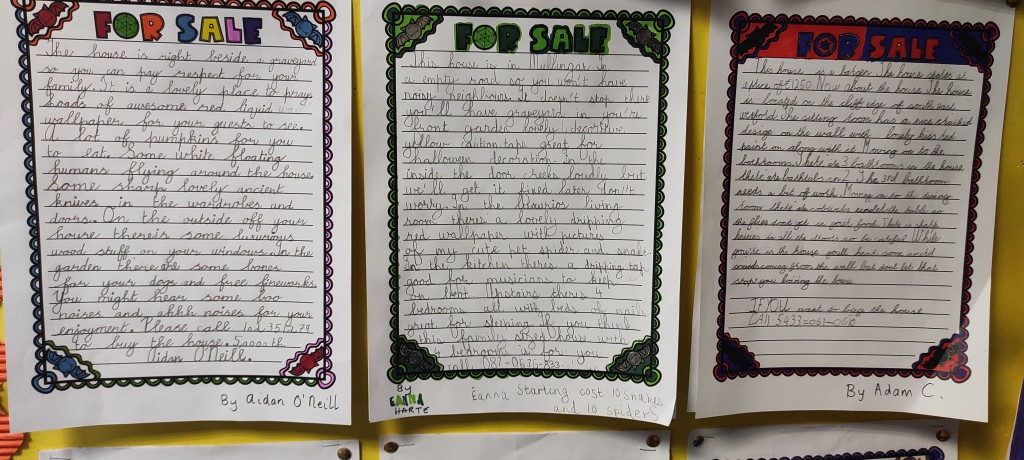 FOR SALE
The house is right beside a graveyard
so you can pay respect for your
family. It is a lovely place to pray
loads of awesome red liquid
wallpaper for your guests to see.
A lot of pumpkins for you
to eat. Some white floating
humans flying around the house
Some sharp lovely ancient
knives in the wardrobes and
doors. On the outside off your
house thereis some luxurious
wood stuff on your windows. In the
garden there are some bones
for your dogs and free fireworks.
You might hear some boo
noises and ahhh noises for your
enjoyment. Please call
to buy the house.
Aidan O'Neill.
By Aidan O'Neill
FOR SALE
This house is in Mullingar in
a empty road so you won't have
noisy neighbours. It doesn't stop there
you'll have graveyard in you're
front garden lovely decoritive
yellow caution tape great for
halloween decoration. In the
inside the door creeks loudly but
we'll get it fixed later don't
worry. In the luxurior living
room there's a lovely dripping
red wallpaper with pictures
of my cute pet spider and snake
in the kitchen theres a dripping tap
good for musicians to keep
on beat. Upstairs theres
bedrooms all with beds of nails
great for sleeping. If you think
this family sized house with
4 bedrooms is for you
call 087-0676-833
By
EANNA
HARTE
Eanna Starting cost 10 snakes
and 10 spiders
FOR SALE
This house is a bargen. The house starts at
a price of 1250 Now about the house. The house
is located on the cliff edge of south east
wexford. The sitting room has a cracked
design on the wall with lovely red
paint on along with it. Moving on to the
bathrooms. There are 3 bathrooms in the house
there are bathtubs in 2. The 3rd bathroom
needs a bit of work. Moving on to the dining
room there are under the table so
the flies dont get in your food. There is
knives in all the so be careful While
you're in the house youll hear some weird
sounds coming from the wall but dont let that
stop you buying the house
IF YOU want to buy the house
CAll 5433=061=060
By Adam C.